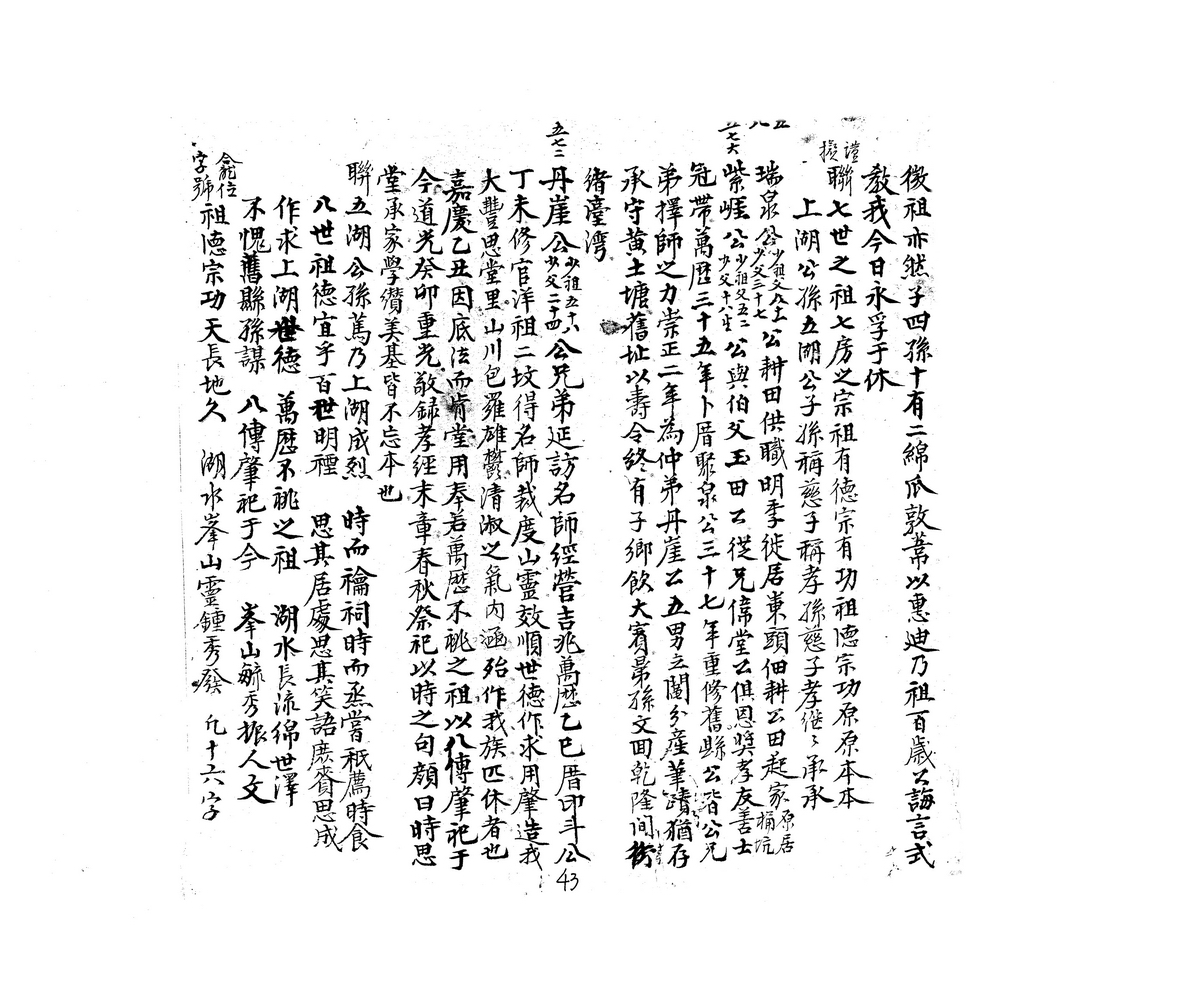 徵祖亦然子四孫十有二綿瓜敦葦以惠迪乃祖百歲公誨言式
教我今日永孚于休
謹擬
聯七世之祖七房之宗祖有德宗有功祖德宗功原原本本
上湖公孫五湖公子孫稱慈子稱孝孫慈子孝継〻承承
瑞泉公少祖父九十少父三十七公耕田供職明季徙居東頭佃耕公田起家原居桶坑
五七六
紫崕公少祖父五二少父十八生公與伯父玉田公從兄偉堂公俱恩奬孝友善士
冠帶萬歷三十五年卜厝聚泉公三十七年重修舊縣公皆公兄
弟擇師之力崇正二年為仲弟丹崖公五男立鬮分產筆蹟猶存
承守黄土塘舊址以壽令終有子鄉飲大賓晜孫文回乾隆间
绪臺湾
五七二
丹崖公少祖五十六少父二十四公兄弟延訪名師經營吉兆萬歷乙巳厝印斗公
丁未修官洋祖二坟得名師裁度山靈效順世德作求用肇造我
大豐思堂里山川包羅雄欝清淑之氣内涵殆作我族匹休者也
嘉慶乙丑因底法而肯堂用奉若萬歷不祧之祖以八傳肇祀于
今道光癸卯重光敬録孝經末章春秋祭祀以時之句顔曰時思
堂承家學纘美基皆不忘本也
聨五湖公孫篤乃上湖成烈 時而禴祠時而烝嘗祇薦時食
八世祖德宜乎百世明禋 思其居處思其笑語庶賚思成
作求上湖世德 萬歷不祧之祖 湖水長流綿世澤
不愧舊縣孫謀 八傳肇祀于今 峯山毓秀振人文
龕位
字號祖德宗功天長地久 湖水峯山靈鍾秀發 凡十六字
43